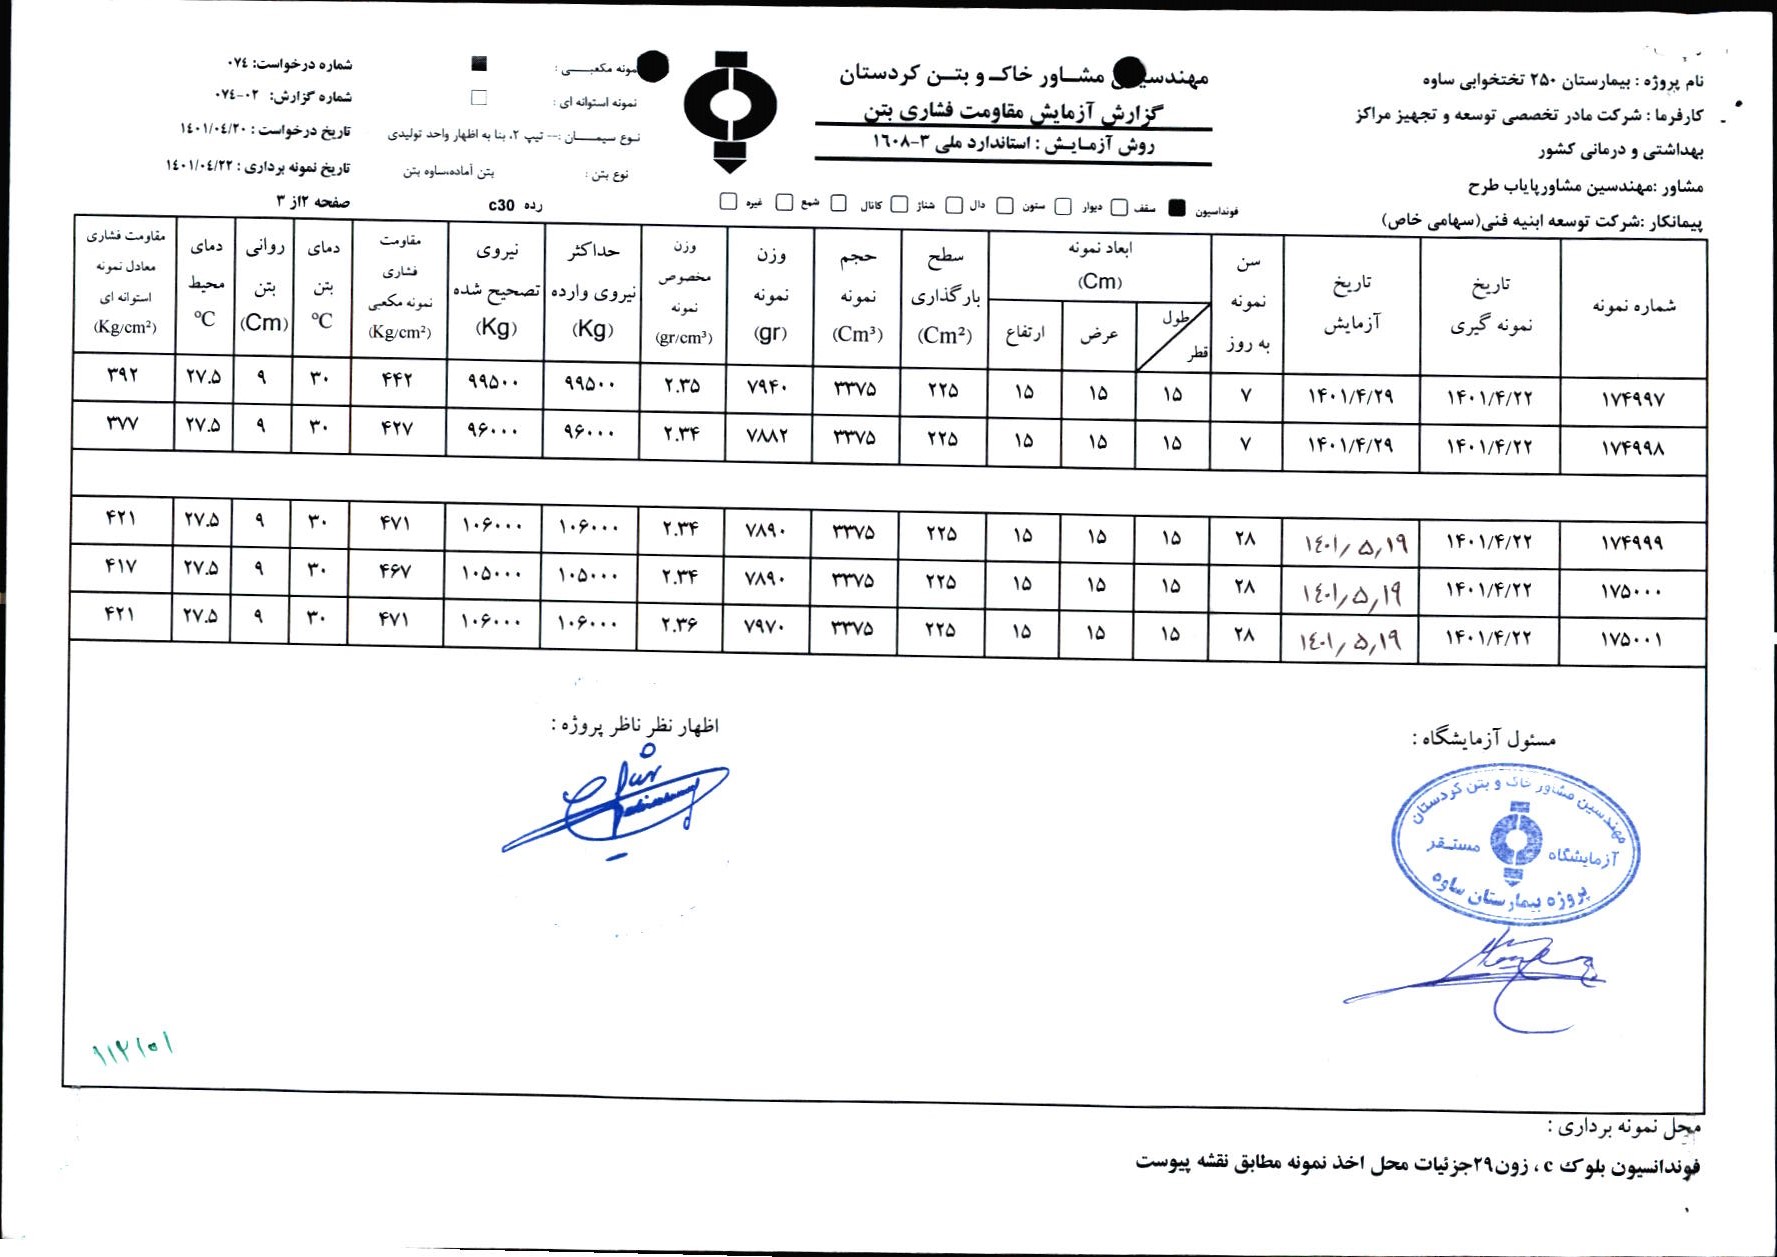 نام پروژه : بیمارستان ۲۵۰ تختخوابی ساوه
کارفرما : شرکت مادر تخصصی توسعه و تجهیز مراکز
بهداشتی و درمانی کشور
مشاور :مهندسین مشاورپایاب طرح
پیمانکار :شرکت توسعه ابنیه فنی(سهامی خاص)
مهندسین مشاور خاک و بتن کردستان
گزارش آزمایش مقاومت فشاری بتن
روش آزمایش : استاندارد ملی ۳-۱۶۰۸
فونداسیون سقف دیوار ستون دال شناژ کانال شمع غیره
نمونه مکعبی :
نمونه استوانه ای :
نوع سیمان :-- تیپ ۲، بنا به اظهار واحد تولیدی
نوع بتن : بتن آماده،ساوه بتن
رده c30
شماره درخواست: ۰۷٤
شماره گزارش: ۰۲-۰۷٤
تاریخ درخواست : ۱٤۰۱/۰٤/۲۰
تاریخ نمونه برداری : ۱٤۰۱/۰٤/۲۲
صفحه ۲از ۳
شماره نمونه | تاریخ نمونه گیری | تاریخ آزمایش | سن نمونه به روز | ابعاد نمونه (Cm) طول قطر | عرض | ارتفاع | سطح بارگذاری (Cm²) | حجم نمونه (Cm³) | وزن نمونه (gr) | وزن مخصوص نمونه (gr/cm³) | حداکثر نیروی وارده (Kg) | نیروی تصحیح شده (Kg) | مقاومت فشاری نمونه مکعبی (Kg/cm²) | دمای بتن °C | روانی بتن (Cm) | دمای محیط °C | مقاومت فشاری معادل نمونه استوانه ای (Kg/cm²)
۱۷۴۹۹۷ | ۱۴۰۱/۴/۲۲ | ۱۴۰۱/۴/۲۹ | ۷ | ۱۵ | ۱۵ | ۱۵ | ۲۲۵ | ۳۳۷۵ | ۷۹۴۰ | ۲.۳۵ | ۹۹۵۰۰ | ۹۹۵۰۰ | ۴۴۲ | ۳۰ | ۹ | ۲۷.۵ | ۳۹۲
۱۷۴۹۹۸ | ۱۴۰۱/۴/۲۲ | ۱۴۰۱/۴/۲۹ | ۷ | ۱۵ | ۱۵ | ۱۵ | ۲۲۵ | ۳۳۷۵ | ۷۸۸۲ | ۲.۳۴ | ۹۶۰۰۰ | ۹۶۰۰۰ | ۴۲۷ | ۳۰ | ۹ | ۲۷.۵ | ۳۷۷
۱۷۴۹۹۹ | ۱۴۰۱/۴/۲۲ | ۱٤۰۱/۵/۱۹ | ۲۸ | ۱۵ | ۱۵ | ۱۵ | ۲۲۵ | ۳۳۷۵ | ۷۸۹۰ | ۲.۳۴ | ۱۰۶۰۰۰ | ۱۰۶۰۰۰ | ۴۷۱ | ۳۰ | ۹ | ۲۷.۵ | ۴۲۱
۱۷۵۰۰۰ | ۱۴۰۱/۴/۲۲ | ۱٤۰۱/۵/۱۹ | ۲۸ | ۱۵ | ۱۵ | ۱۵ | ۲۲۵ | ۳۳۷۵ | ۷۸۹۰ | ۲.۳۴ | ۱۰۵۰۰۰ | ۱۰۵۰۰۰ | ۴۶۷ | ۳۰ | ۹ | ۲۷.۵ | ۴۱۷
۱۷۵۰۰۱ | ۱۴۰۱/۴/۲۲ | ۱٤۰۱/۵/۱۹ | ۲۸ | ۱۵ | ۱۵ | ۱۵ | ۲۲۵ | ۳۳۷۵ | ۷۹۷۰ | ۲.۳۶ | ۱۰۶۰۰۰ | ۱۰۶۰۰۰ | ۴۷۱ | ۳۰ | ۹ | ۲۷.۵ | ۴۲۱
مسئول آزمایشگاه :
اظهار نظر ناظر پروژه :
مهندسین مشاور خاک و بتن کردستان
آزمایشگاه مستقر
پروژه بیمارستان ساوه
محل نمونه برداری :
فونداسیون بلوک c ، زون۲۹جزئیات محل اخذ نمونه مطابق نقشه پیوست